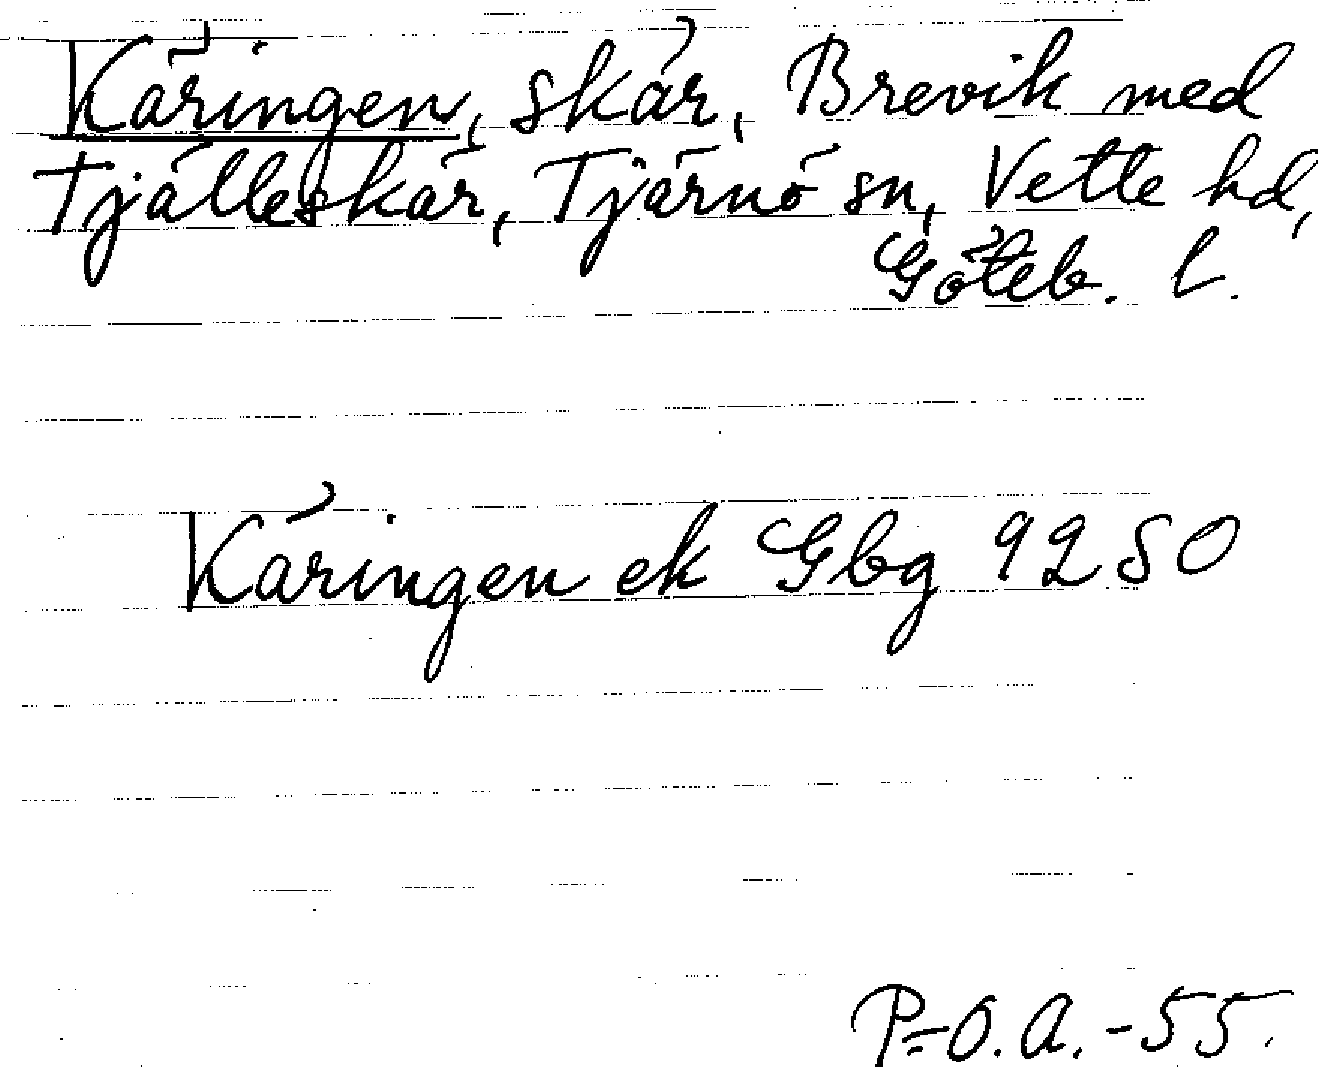 Käringen, skär, Brevik med
Tjälleskär, Tjärnö sn, Vette hd,
Göteb. l.
Käringen ek Gbg 9250
P-O.A.-55.